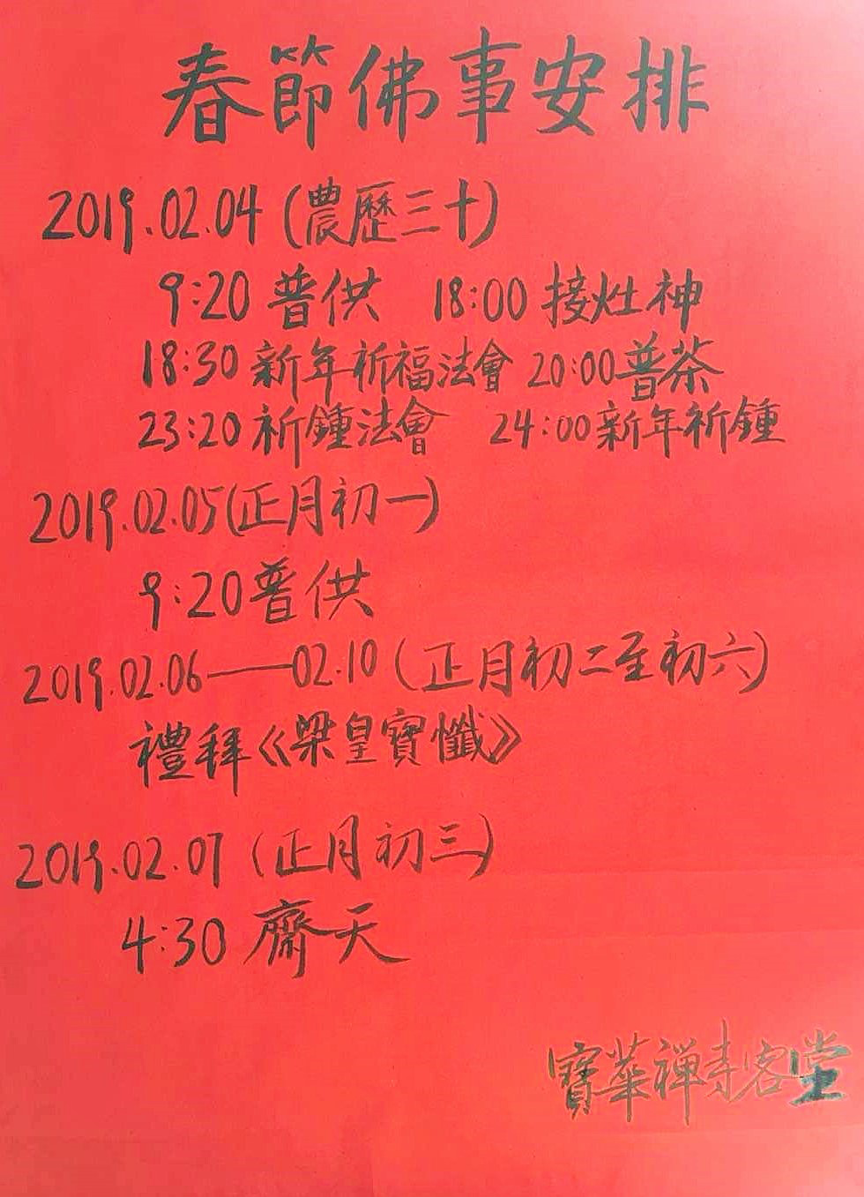 春節佛事安排
2019.02.04(農歷三十)
9:20普供 18:00接灶神
18:30新年祈福法會 20:00普茶
23:20祈鐘法會 24:00新年祈鐘
2019.02.05(正月初一)
9:20普供
2019.02.06——02.10(正月初二至初六)
禮拜《梁皇寶懺》
2019.02.07(正月初三)
4:30齋天
寶華禪寺客堂